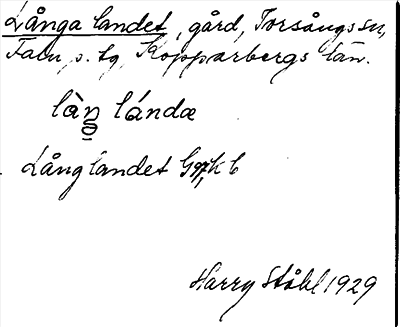 Långa landet, gård, Torsångs sn,
Falu s. tg, Kopparbergs län.
làŋ lándæ
Långlandet Gsrk 6
Harry Ståhl 1929